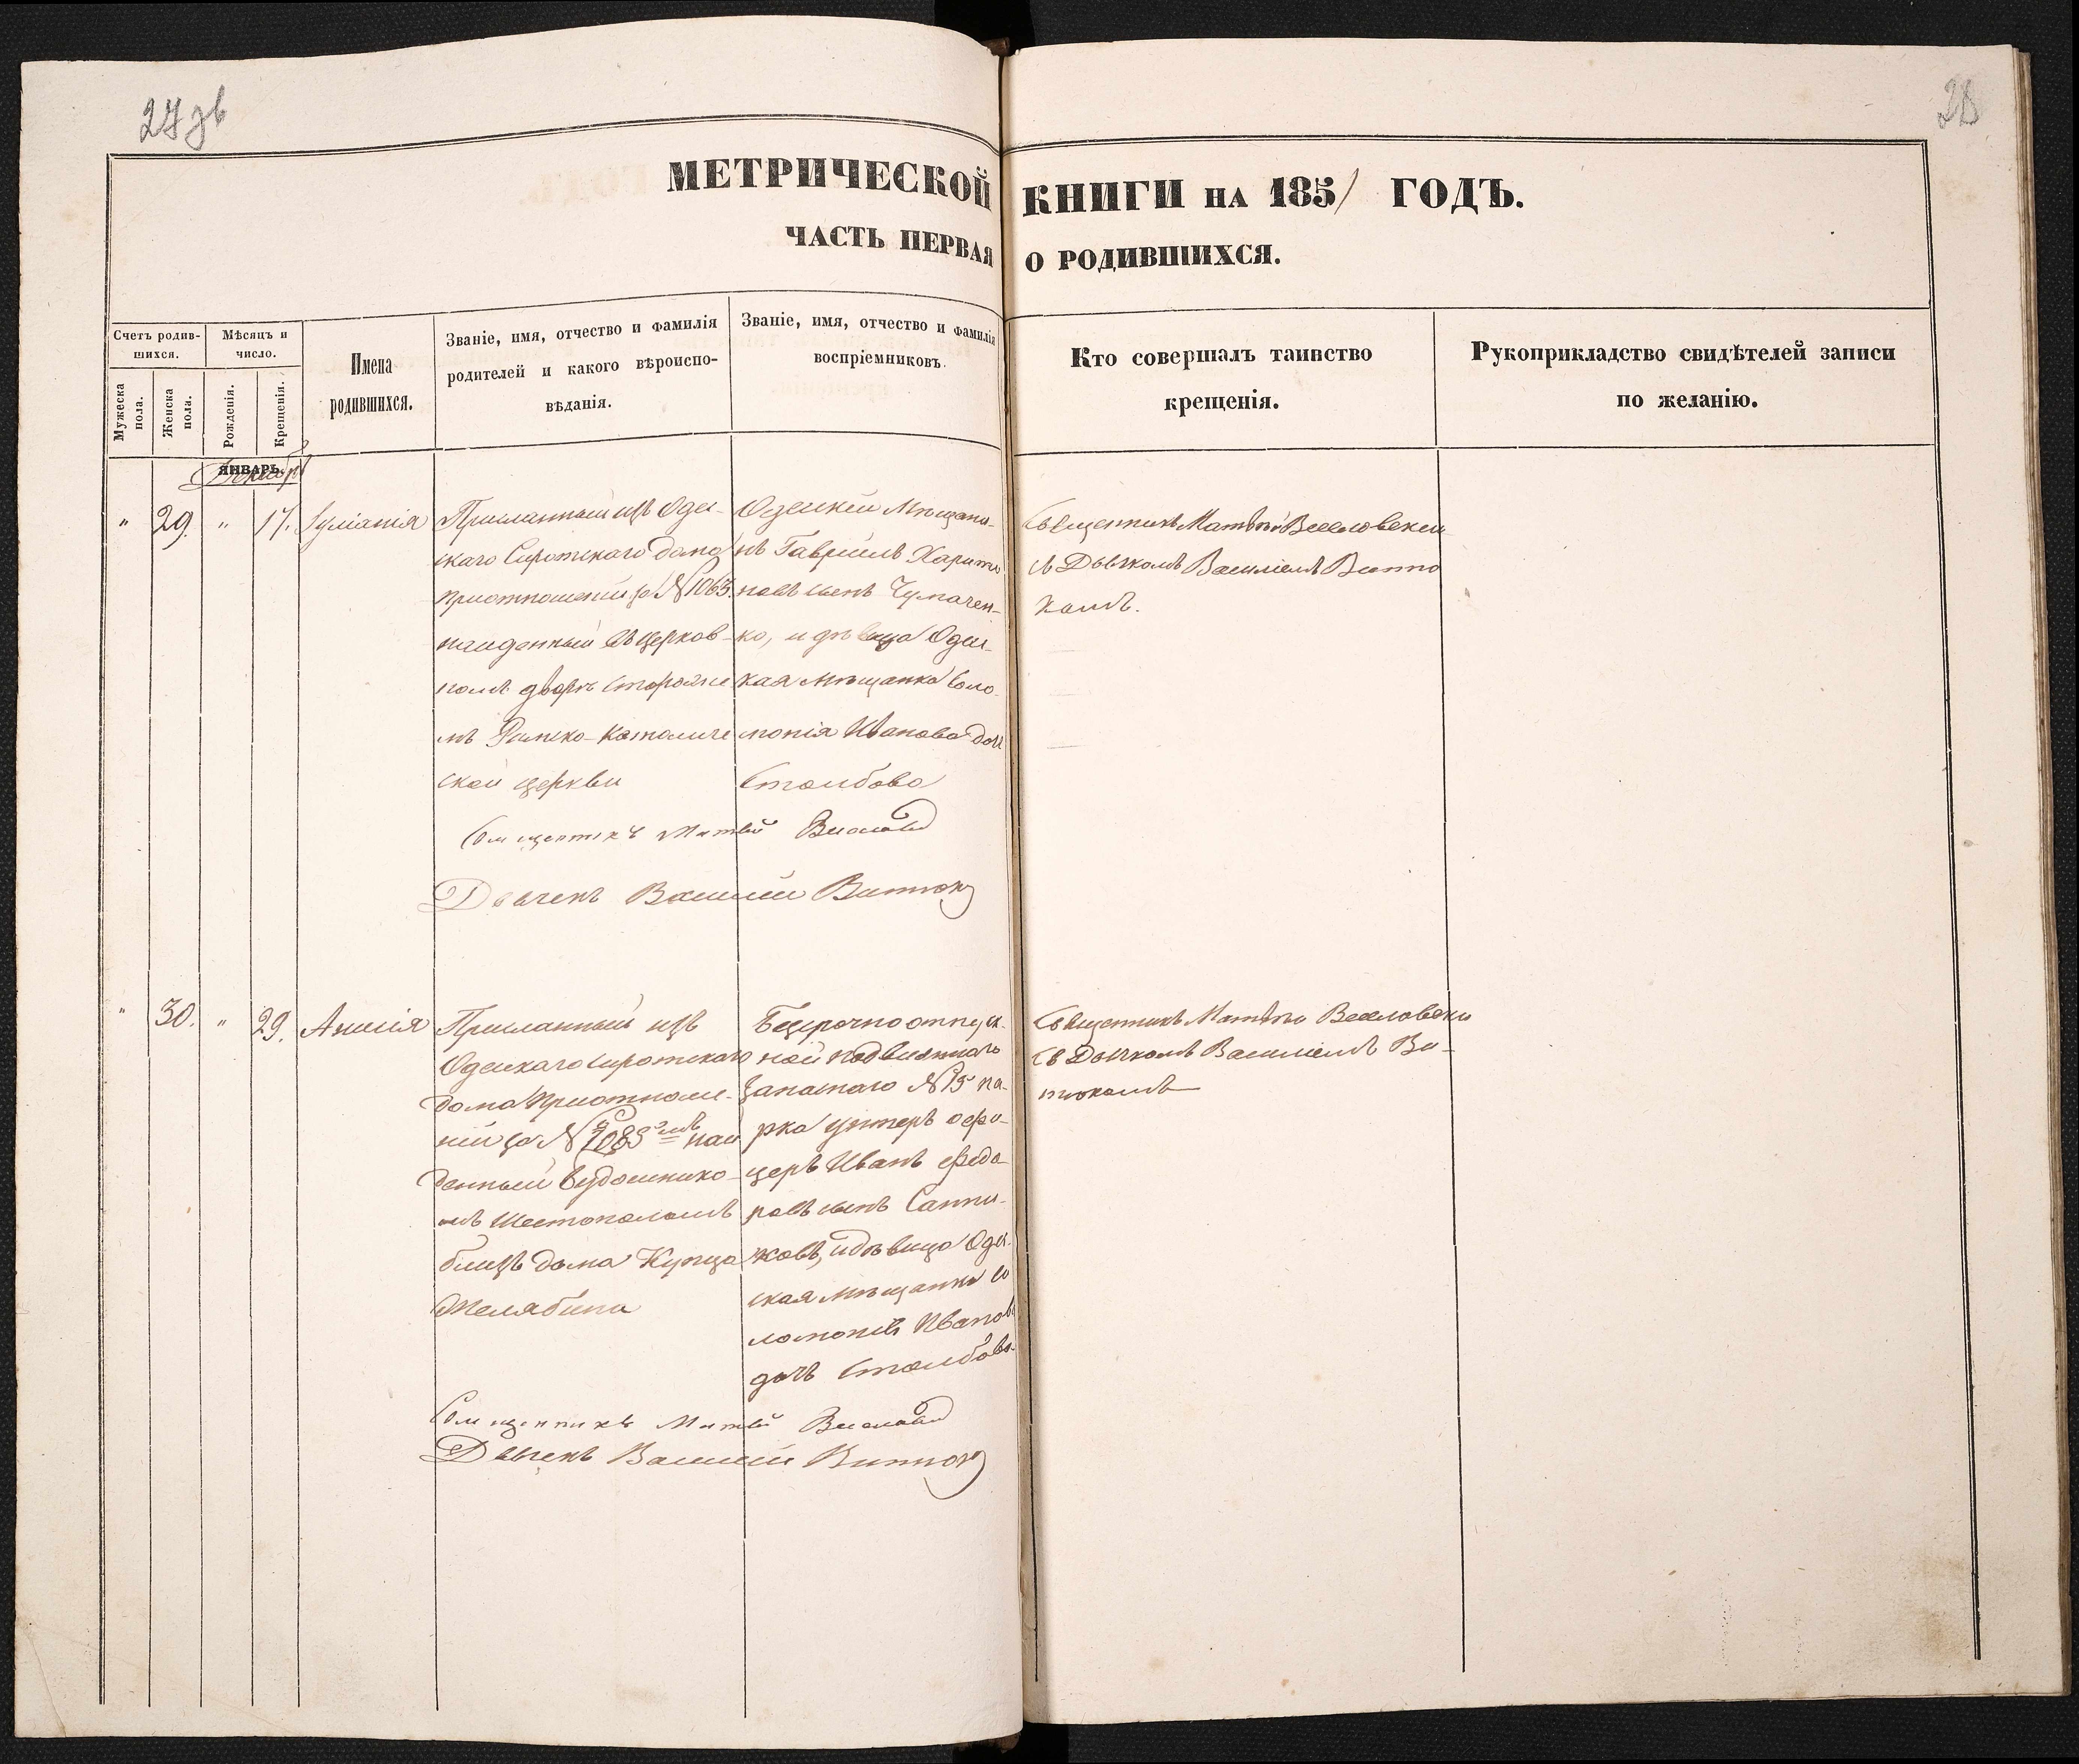 27 зв
28
МЕТРИЧЕСКОЙ КНИГИ НА 1851 ГОДЪ.
ЧАСТЬ ПЕРВАЯ О РОДИВШИХСЯ.
Счетъ родив-
шихся.
Мужеска пола.
Женска пола.
Мѣсяцъ и
число.
Рожденія.
Крещенія.
Имена
родившихся.
Званіе, имя, отчество и фамилія
родителей и какого вѣроиспо-
вѣданія.
Званіе, имя, отчество и фамилія
воспріемниковъ.
Кто совершалъ таинство
крещенія.
Рукоприкладство свидѣтелей записи
по желанію.
ЯНВАРЬ
Декабрь
" 29. " 17. Іуліанія
Присланный изъ Одес-
скаго Сиротскаго дома
приотношеніи за № 1063.
найденный въ церков-
номъ дворѣ сторожe
мъ Римско-Католиче
ской церкви
Одескій Мѣщани-
нъ Гавріилъ Харито
новъ сынъ Чумачен-
ко, и дѣвица Одес-
кая мѣщанка Соло-
монія Иванова доч
Столбова
Священникъ Матѳѣй Веселовски
съ Дьячкомъ Василіемъ Витю
комъ.
Священникъ Матѳей
Дьячекъ Василій Витюк
" 30. " 29. Анисія
Присланный изъ
Одескаго сиротскаго
дома приотноше-
ніи за № 1083 най
денный будошнико-
мъ Шестопаломъ
близъ дома Купца
Желябина
Безсрочноотпуск-
ной подвижнаго
запаснаго № 15 па-
рка унтеръ офи-
церъ Иванъ Федо-
ровъ сынъ
ковъ, и дѣвица Одес-
ская мѣщанка Со
ломонія Иванов
дочь Столбова
Священникъ Матѳѣй Веселовски
съ Дьячкомъ Василіемъ Ви-
тюкомъ
Священникъ Матѳей
Дьячекъ Василій Витюк